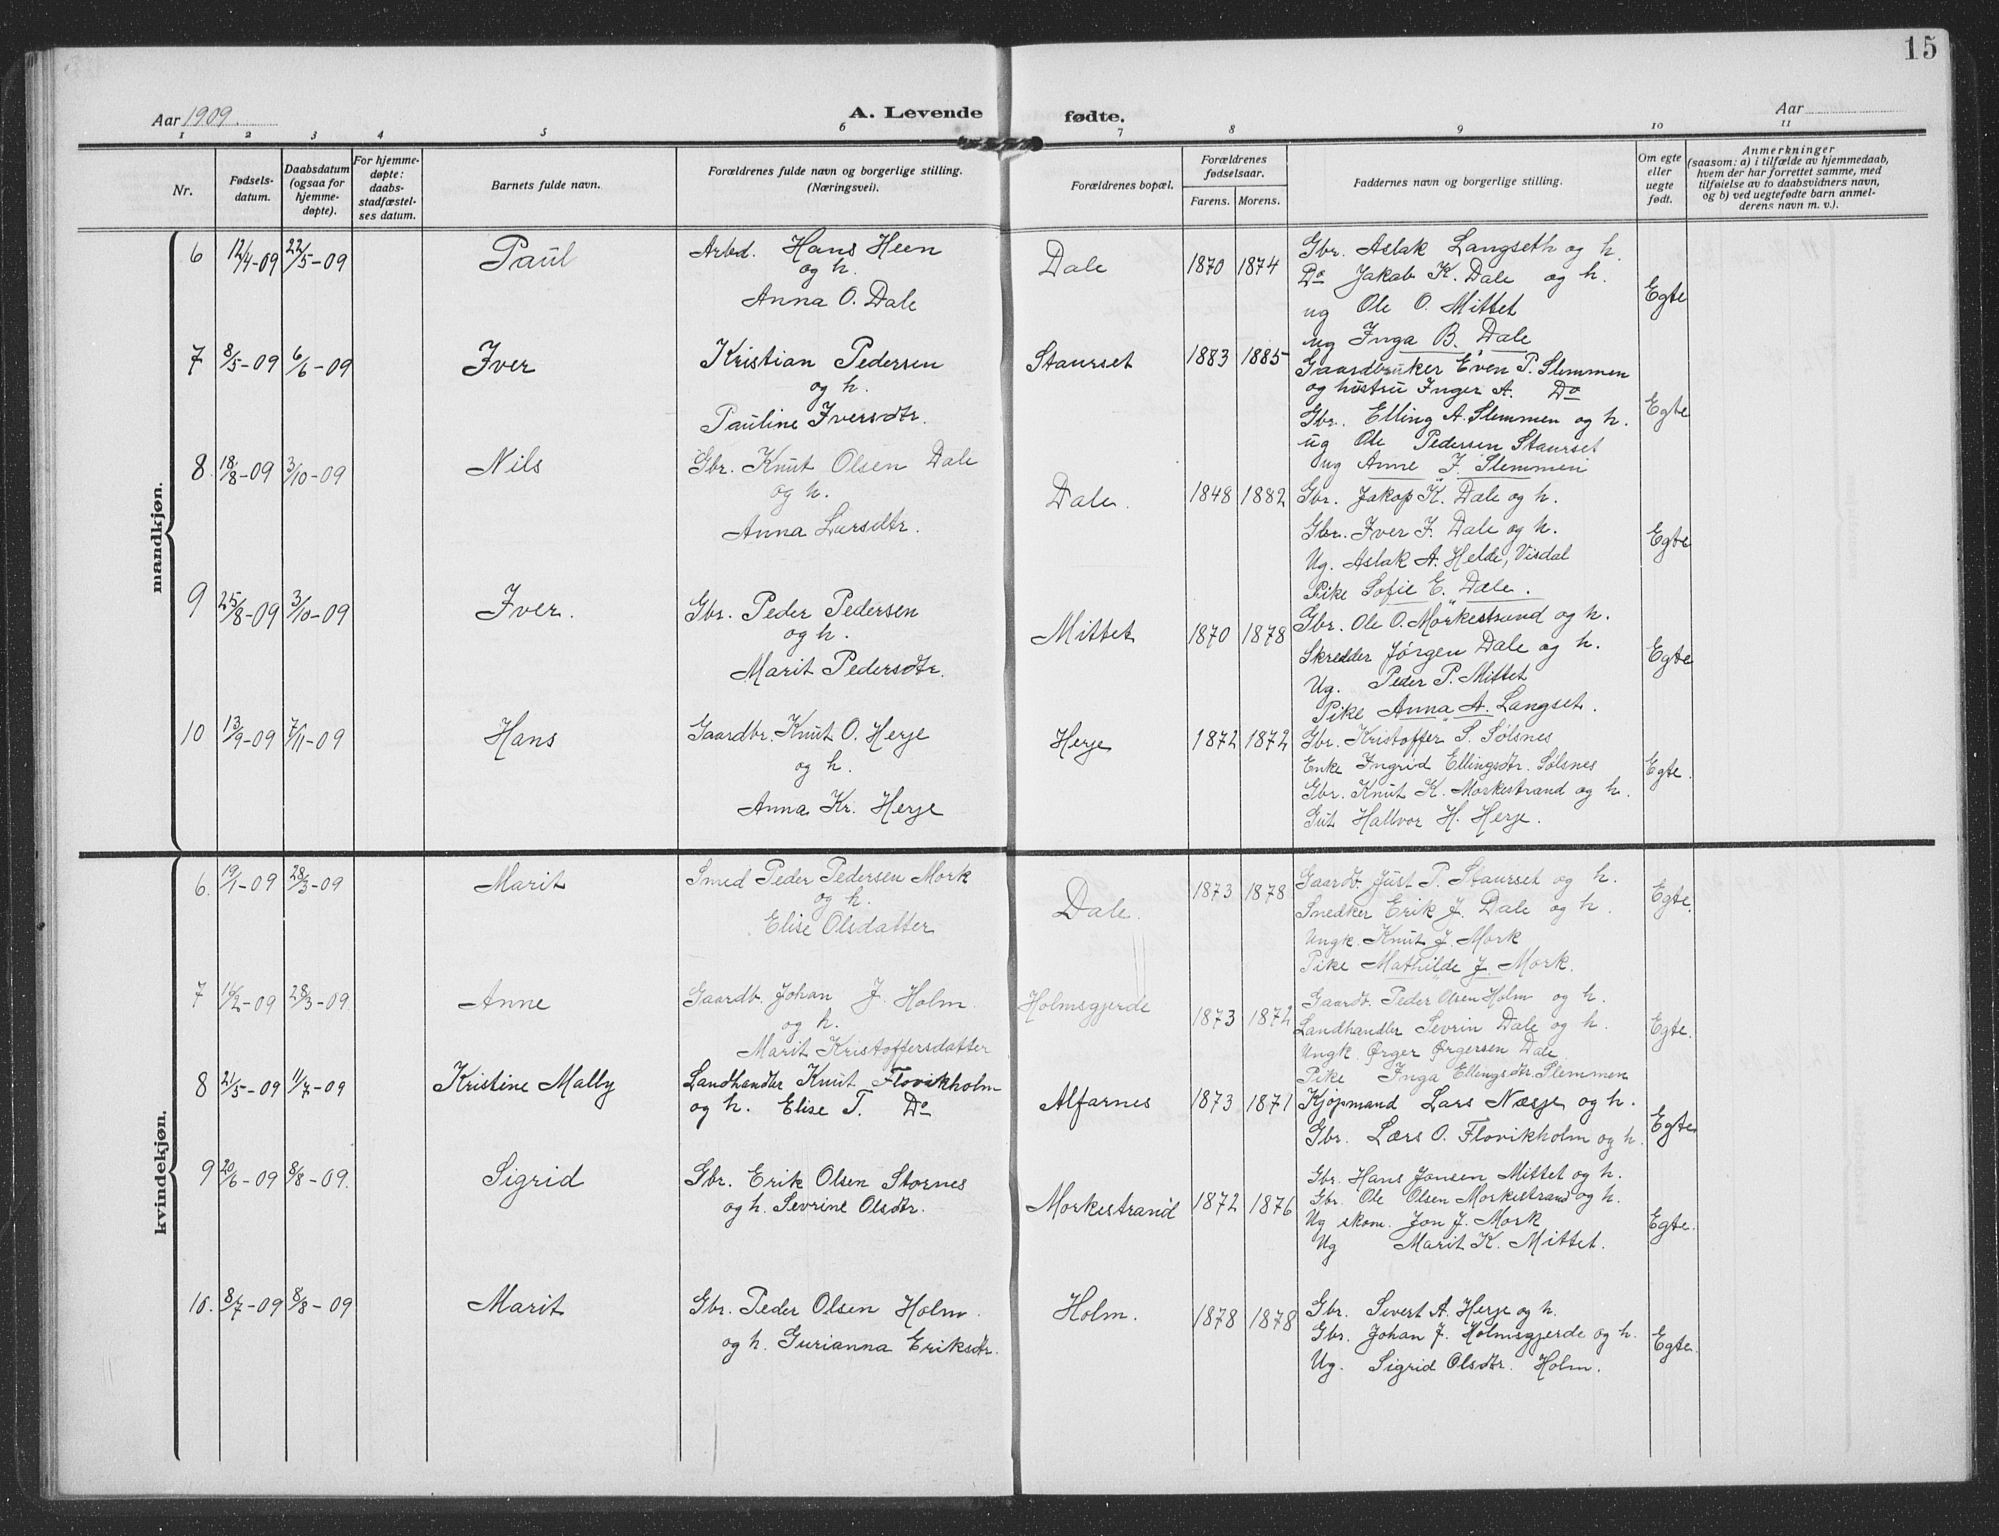 15
Aar 1909. A. Levende fødte. Aar
1 2 3 4 5 6 7 8 9 10 11
Nr.
Fødsels-
datum.
Daabsdatum
(ogsaa for
hjemme-
døpte).
For hjemme-
døpte:
daabs-
stadfæstel-
ses datum.
Barnets fulde navn.
Forældrenes fulde navn og borgerlige stilling.
(Næringsvei).
Forældrenes bopæl.
Forældrenes
fødselsaar.
Farens. Morens.
Faddernes navn og borgerlige stilling.
Om egte
eller
uegte
født.
Anmerkninger
(saasom: a) i tilfælde av hjemmedaab,
hvem der har forrettet samme, med
tilføielse av to daabsvidners navn,
og b) ved uegtefødte barn anmel-
derens navn m. v.).
mandkjøn.
6 12/4-09 22/5-09 Paul
Arbd. Hans Heen
og h.
Anna O. Dale
Dale 1870 1874
Gbr. Aslak Langseth og h.
Do Jakob K. Dale og h.
ug Ole O. Mittet
ug Inga B. Dale
Egte
7 8/5-09 6/6-09 Iver
Kristian Pedersen
og h.
Pauline Iversdtr.
Staurset 1883 1885
Gaardbruker Even P. Slemmen
og hustru Inger A. Do
Gbr. Elling A. Slemmen og h.
ug Ole Pedersen Staurset
ug Anne J. Slemmen
Egte
8. 18/8-09 3/10-09 Nils
Gbr. Knut Olsen Dale
og h.
Anna Larsdtr.
Dale. 1848 1882
Gbr. Jakop K. Dale og h.
Gbr. Iver J. Dale og h.
Ug. Aslak A. Helde, Visdal
Pike Sofie E. Dale.
Egte
9 25/8-09 3/10-09 Iver.
Gbr. Peder Pedersen
og h.
Marit Pedersdtr.
Mittet 1870 1878
Gbr. Ole O. Morkestrand og h.
Skredder Jørgen Dale og h.
Ug. Peder P. Mittet
Pike Anna A. Langset.
Egte
10 13/9-09 7/11-09 Hans
Gaardbr. Knut O. Herje
og h.
Anna Kr. Herje
Herje 1872 1872
Gbr. Kristoffer S. Sølsnes
Enke Ingrid Ellingsdtr. Sølsnes
Gbr. Knut K. Morkestrand og h.
Gut Hallvor H. Herje.
Egte.
kvindekjøn.
6. 19/1-09 28/3-09 Marit
Smed Peder Pedersen Mork
og h.
Elise Olsdatter
Dale. 1873 1878
Gaardb. Just P. Staurset og h.
Snedker Erik J. Dale og h.
Ungk. Knut J. Mork
Pike Mathilde J. Mork.
Egte.
7 16/2-09 28/3-09. Anne
Gaardb. Johan J. Holm.
og h.
Marit Kristoffersdatter
Holmsgjerde 1873 1872
Gaardb. Peder Olsen Holm og h.
Landhandler Sevrin Dale og h.
Ungk. Ørger Ørgersen Dale
Pike Inga Ellingsdtr. Slemmen
Egte.
8 21/5-09 11/7-09 Kristine Mally
Landhandler Knut Flovikholm
og h. Elise T. Do
Alfarnes 1873 1871
Kjøpmand Lars Næsje og h.
Gbr. Lars O. Flovikholm og h.
Egte.
9 20/6-09 8/8-09. Sigrid
Gbr. Erik Olsen Stornes
og h. Sevrine Olsdtr.
Morkestrand 1872 1876
Gbr. Hans Jonsen Mittet og h.
Gbr. Ole Olsen Morkestrand og h.
Ug skom. Jon J. Mork
Ug Marit K. Mittet.
Egte.
10. 8/7-09 8/8-09 Marit
Gbr. Peder Olsen Holm.
og h. Gurianna Eriksdtr.
Holm. 1878 1878
Gbr. Sivert A. Herje og h.
Gbr. Johan J. Holmsgjerde og h.
Ug. Sigrid Olsdtr. Holm.
Egte.